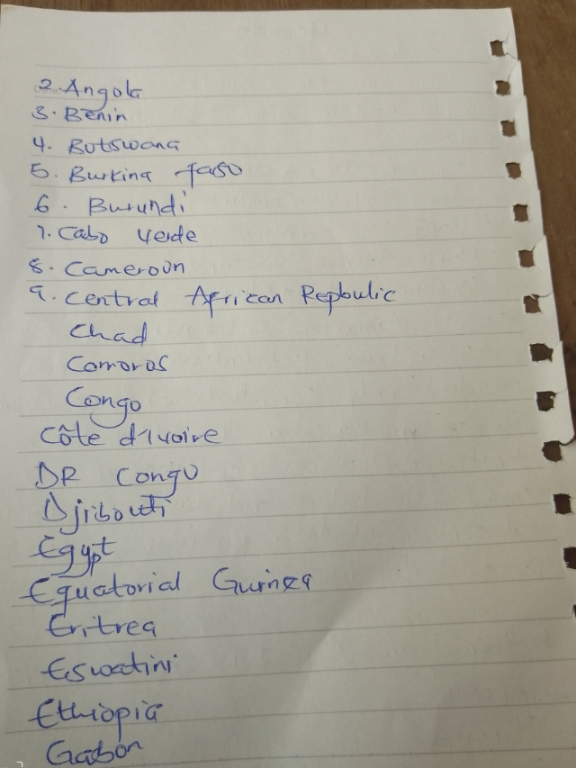 2. Angola
3. Benin
4. Botswana
5. Burkina faso
6. Burundi
7. Cabo verde
8. Cameroon
9. Central African Repbulic
Chad
Comoros
Congo
Côte d'Ivoire
DR Congo
Djibouti
Egypt
Equatorial Guinea
Eritrea
Eswatini
Ethiopia
Gabon